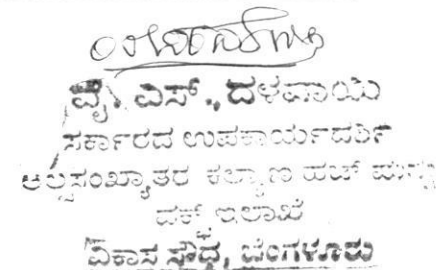 ವೈ. ಎಸ್., ದಳವಾಯಿ
ಸರ್ಕಾರದ ಉಪಕಾರ್ಯದರ್ಶಿ
ಅಲ್ಪಸಂಖ್ಯಾತರ ಕಲ್ಯಾಣ ಹಜ್ ಮತ್ತು
ವಕ್ಫ್ ಇಲಾಖೆ
ವಿಕಾಸ ಸೌಧ, ಬೆಂಗಳೂರು